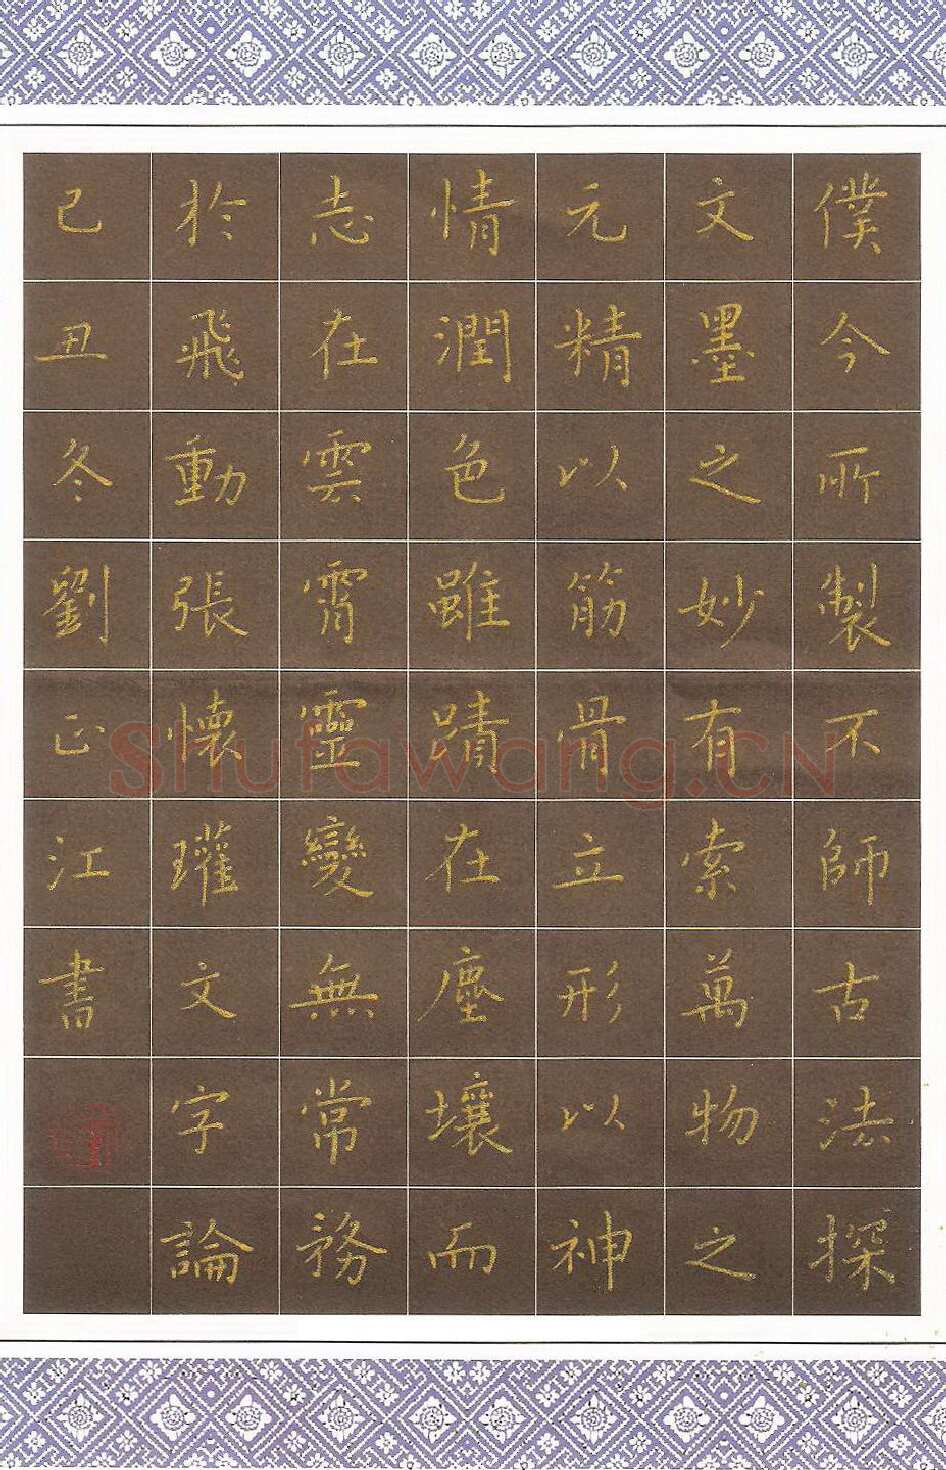 僕今所製不師古法探
文墨之妙有索萬物之
元精以筋骨立形以神
情潤色雖蹟在塵壤而
志在雲霄靈變無常務
於飛動張懷瓘文字論
己丑冬劉正江書
Shufawang.CN